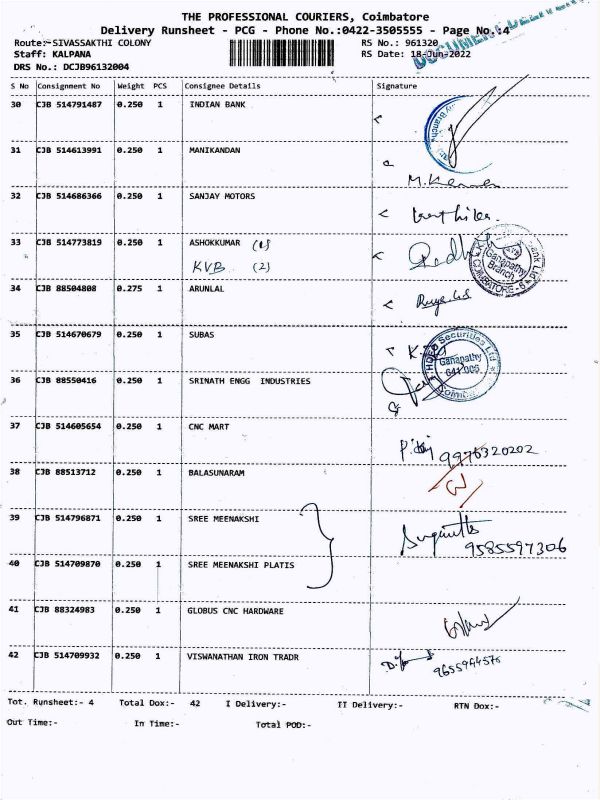 THE PROFESSIONAL COURIERS, Coimbatore
Delivery Runsheet - PCG - Phone No.:0422-3505555 - Page No.:4
Route:- SIVASSAKTHI COLONY RS No.: 961320
Staff: KALPANA RS Date: 18-Jun-2022
DRS No.: DCJB96132004
S No Consignment No Weight PCS Consignee Details Signature
30 CJB 514791487 0.250 1 INDIAN BANK
31 CJB 514613991 0.250 1 MANIKANDAN
32 CJB 514686366 0.250 1 SANJAY MOTORS
33 CJB 514773819 0.250 1 ASHOKKUMAR (1)
KVB (2)
Ganapathy
Branch
COIMBATORE - 6
34 CJB 88504808 0.275 1 ARUNLAL
35 CJB 514670679 0.250 1 SUBAS
Securities Ltd
Ganapathy
641 006
36 CJB 88550416 0.250 1 SRINATH ENGG INDUSTRIES
37 CJB 514605654 0.250 1 CNC MART
9976320202
38 CJB 88513712 0.250 1 BALASUNARAM
39 CJB 514796871 0.250 1 SREE MEENAKSHI
9585597306
40 CJB 514709870 0.250 1 SREE MEENAKSHI PLATIS
41 CJB 88324983 0.250 1 GLOBUS CNC HARDWARE
42 CJB 514709932 0.250 1 VISWANATHAN IRON TRADR
9655944576
Tot. Runsheet:- 4 Total Dox:- 42 I Delivery:- II Delivery:- RTN Dox:-
Out Time:- In Time:- Total POD:-